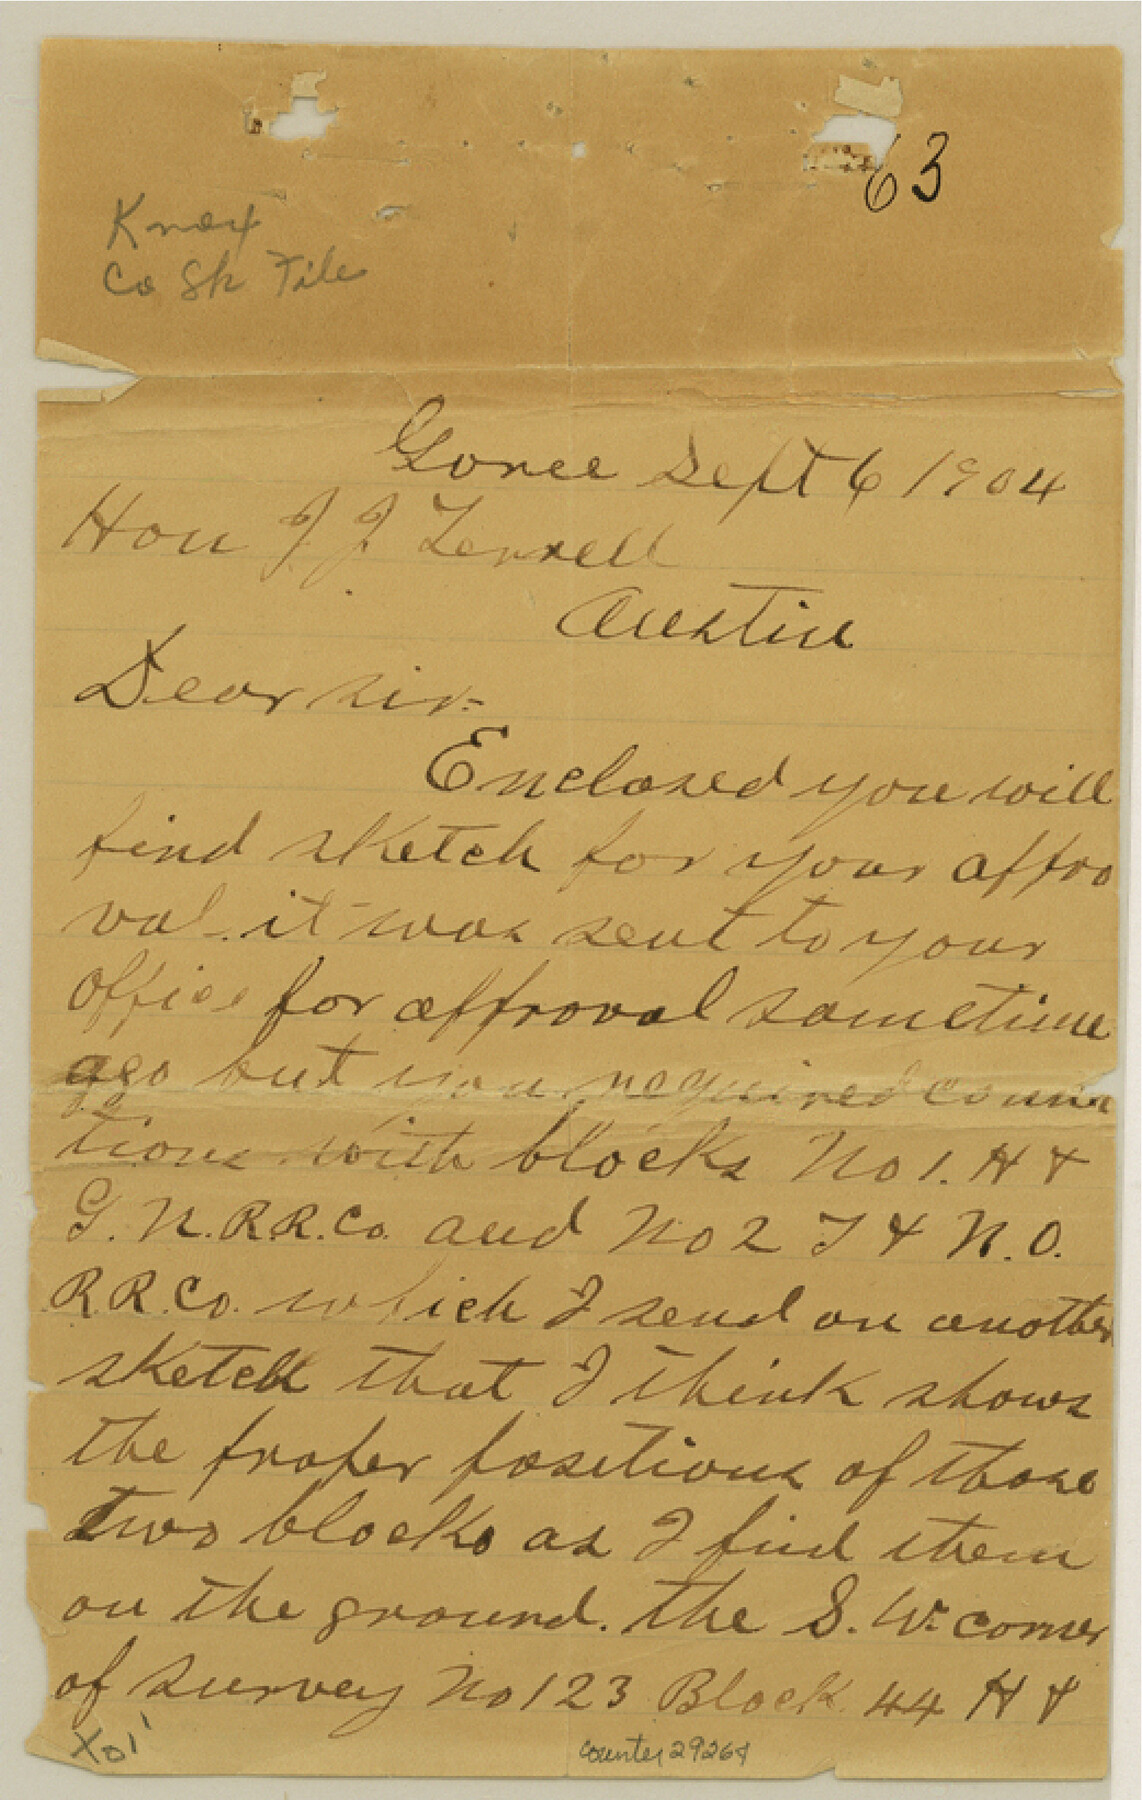 63
Knox
Co Sk File
Goree Sept 6 1904
Hon J J Terrell
Austin
Dear sir-
Enclosed you will
find sketch for your appro
val. it was sent to your
office for approval sometime
ago but you required conn
tions with blocks No 1. H &
G. N. R.R. Co. and No 2 T & N. O.
R.R. Co. which I send on another
sketch that I think shows
the proper positions of those
two blocks as I find them
on the ground. the S. W. corner
of survey No 123 Block 44 H &
counter 29264